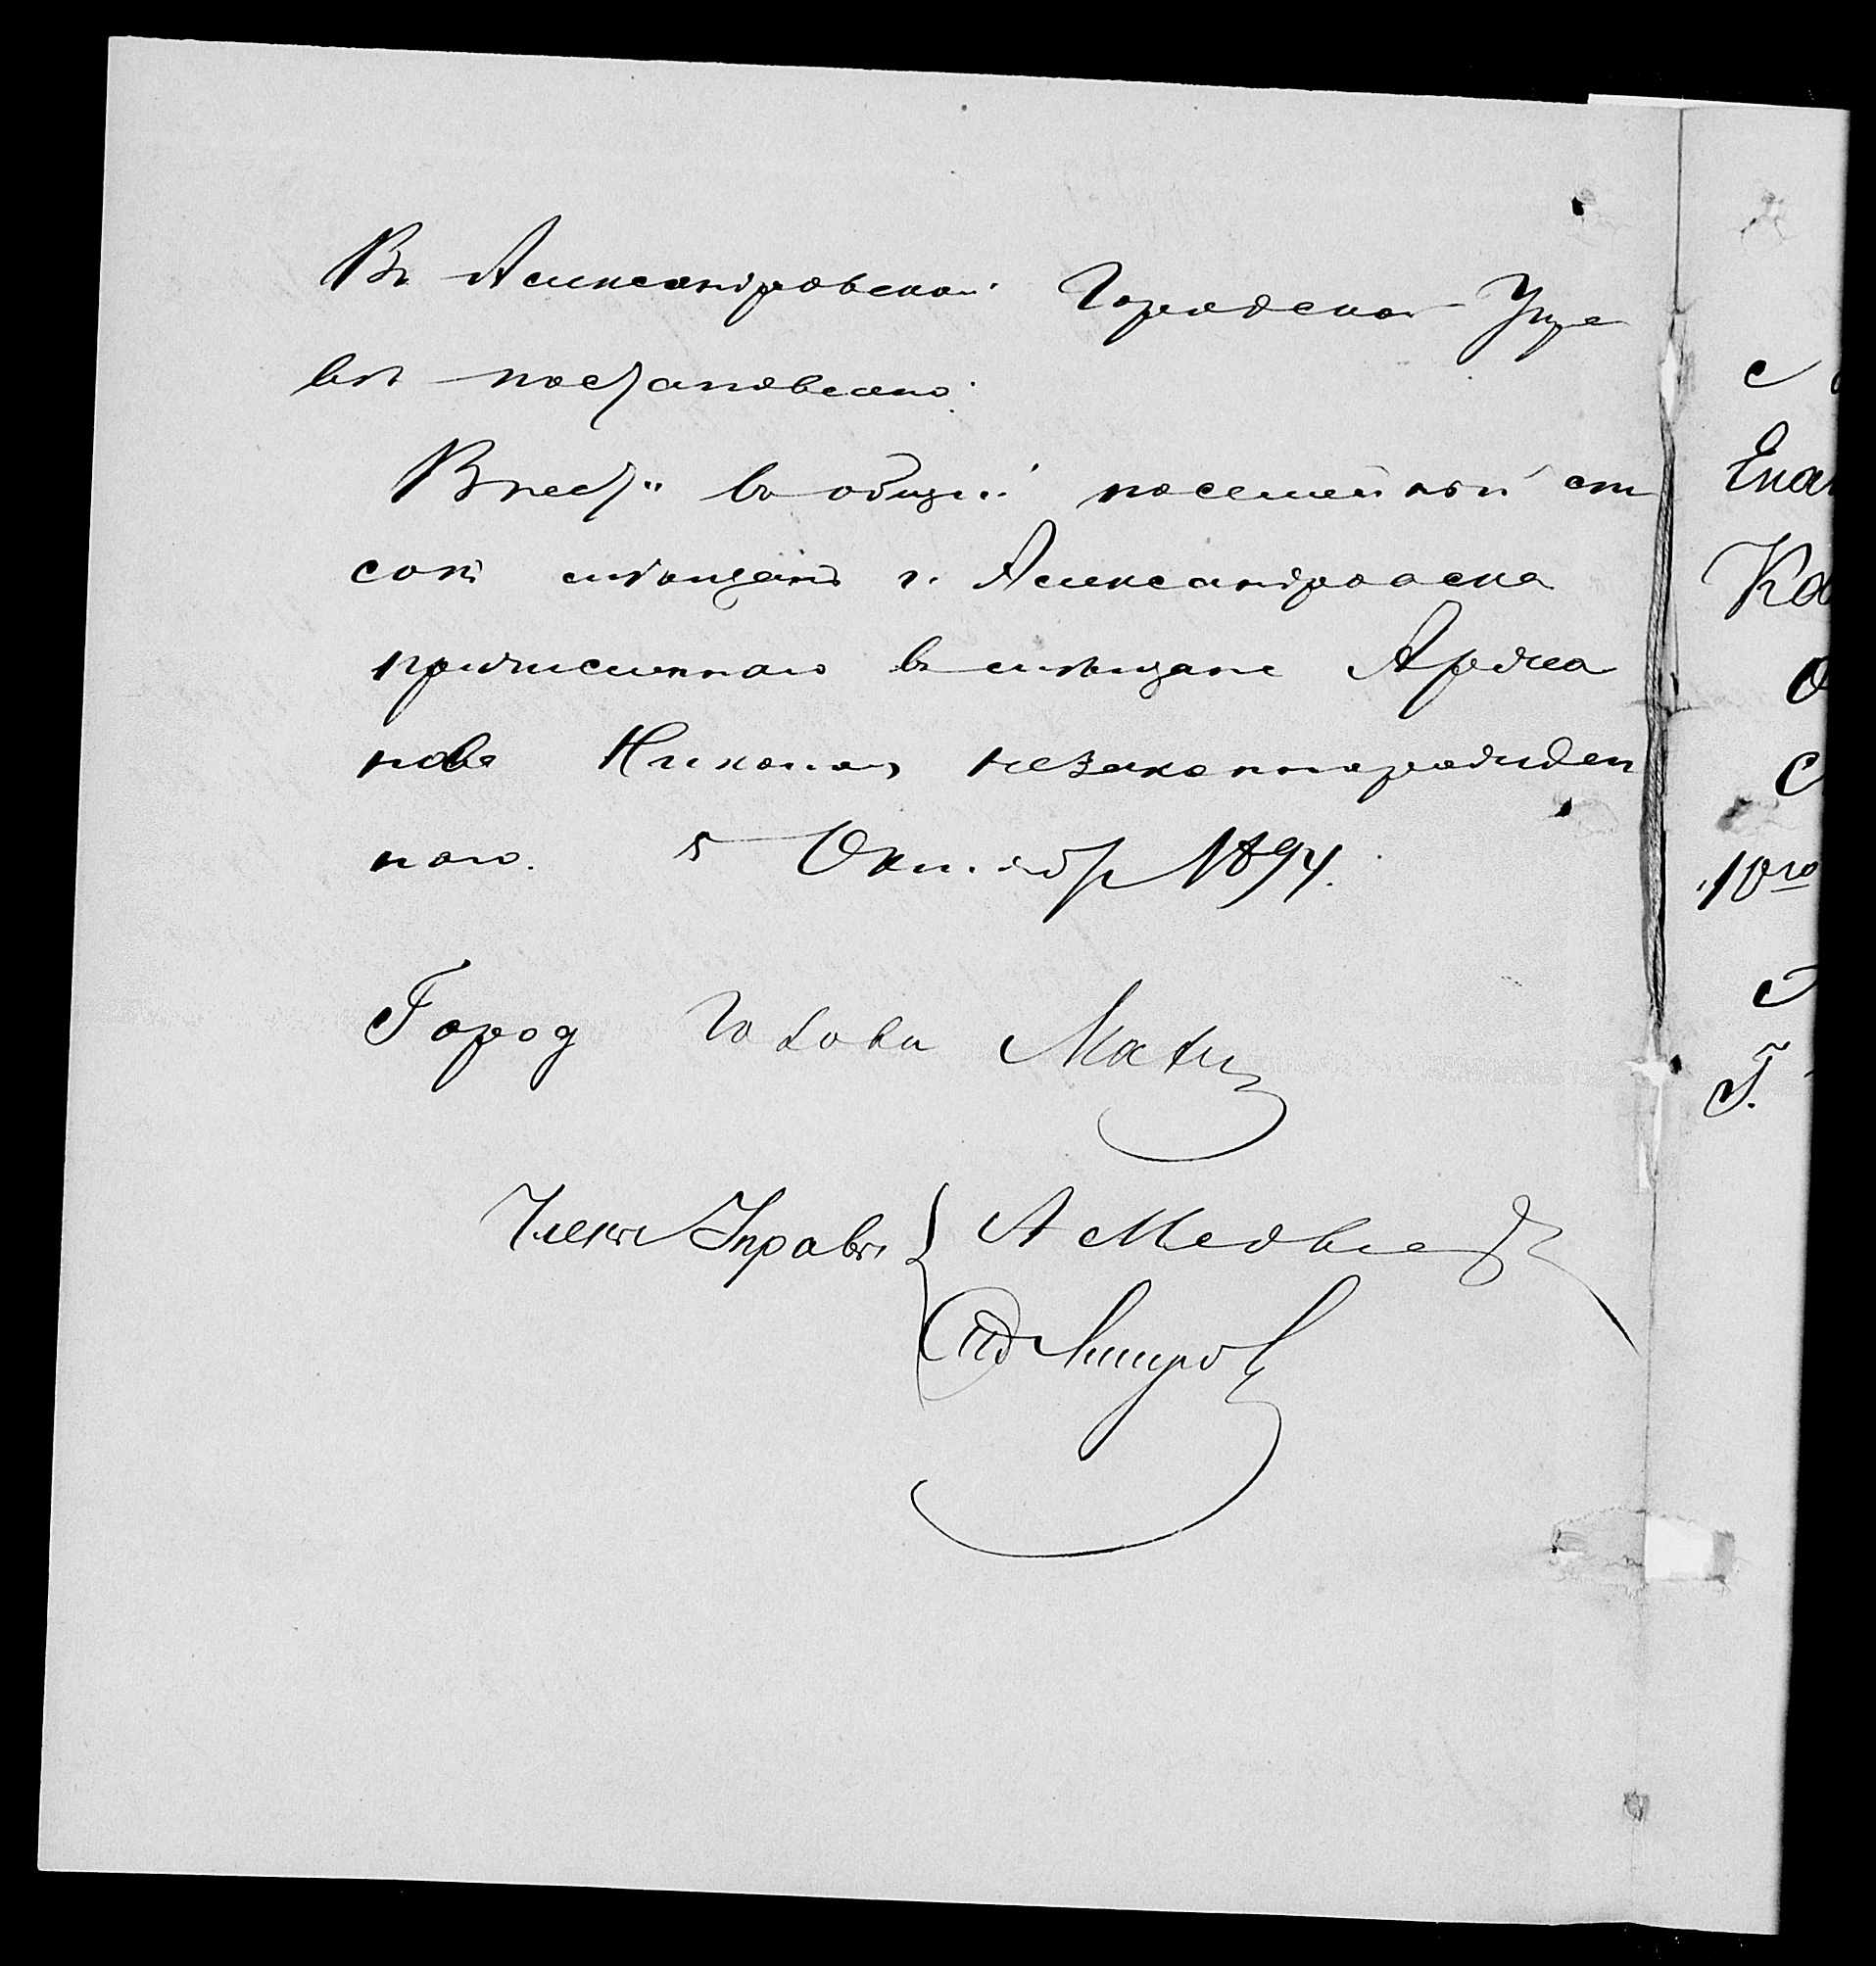 Въ Александровской Городской Упра
вѣ постановлено:
Внести въ общій посемейный спи
сокъ мѣщанъ г. Александровска
причисленнаго въ мѣщане
Николая незаконнорожден
наго. 5 Октября 1894.
Город Голова
Члены Управы { А Медведев
с
Ека
Ко
О
с
10го
Г.